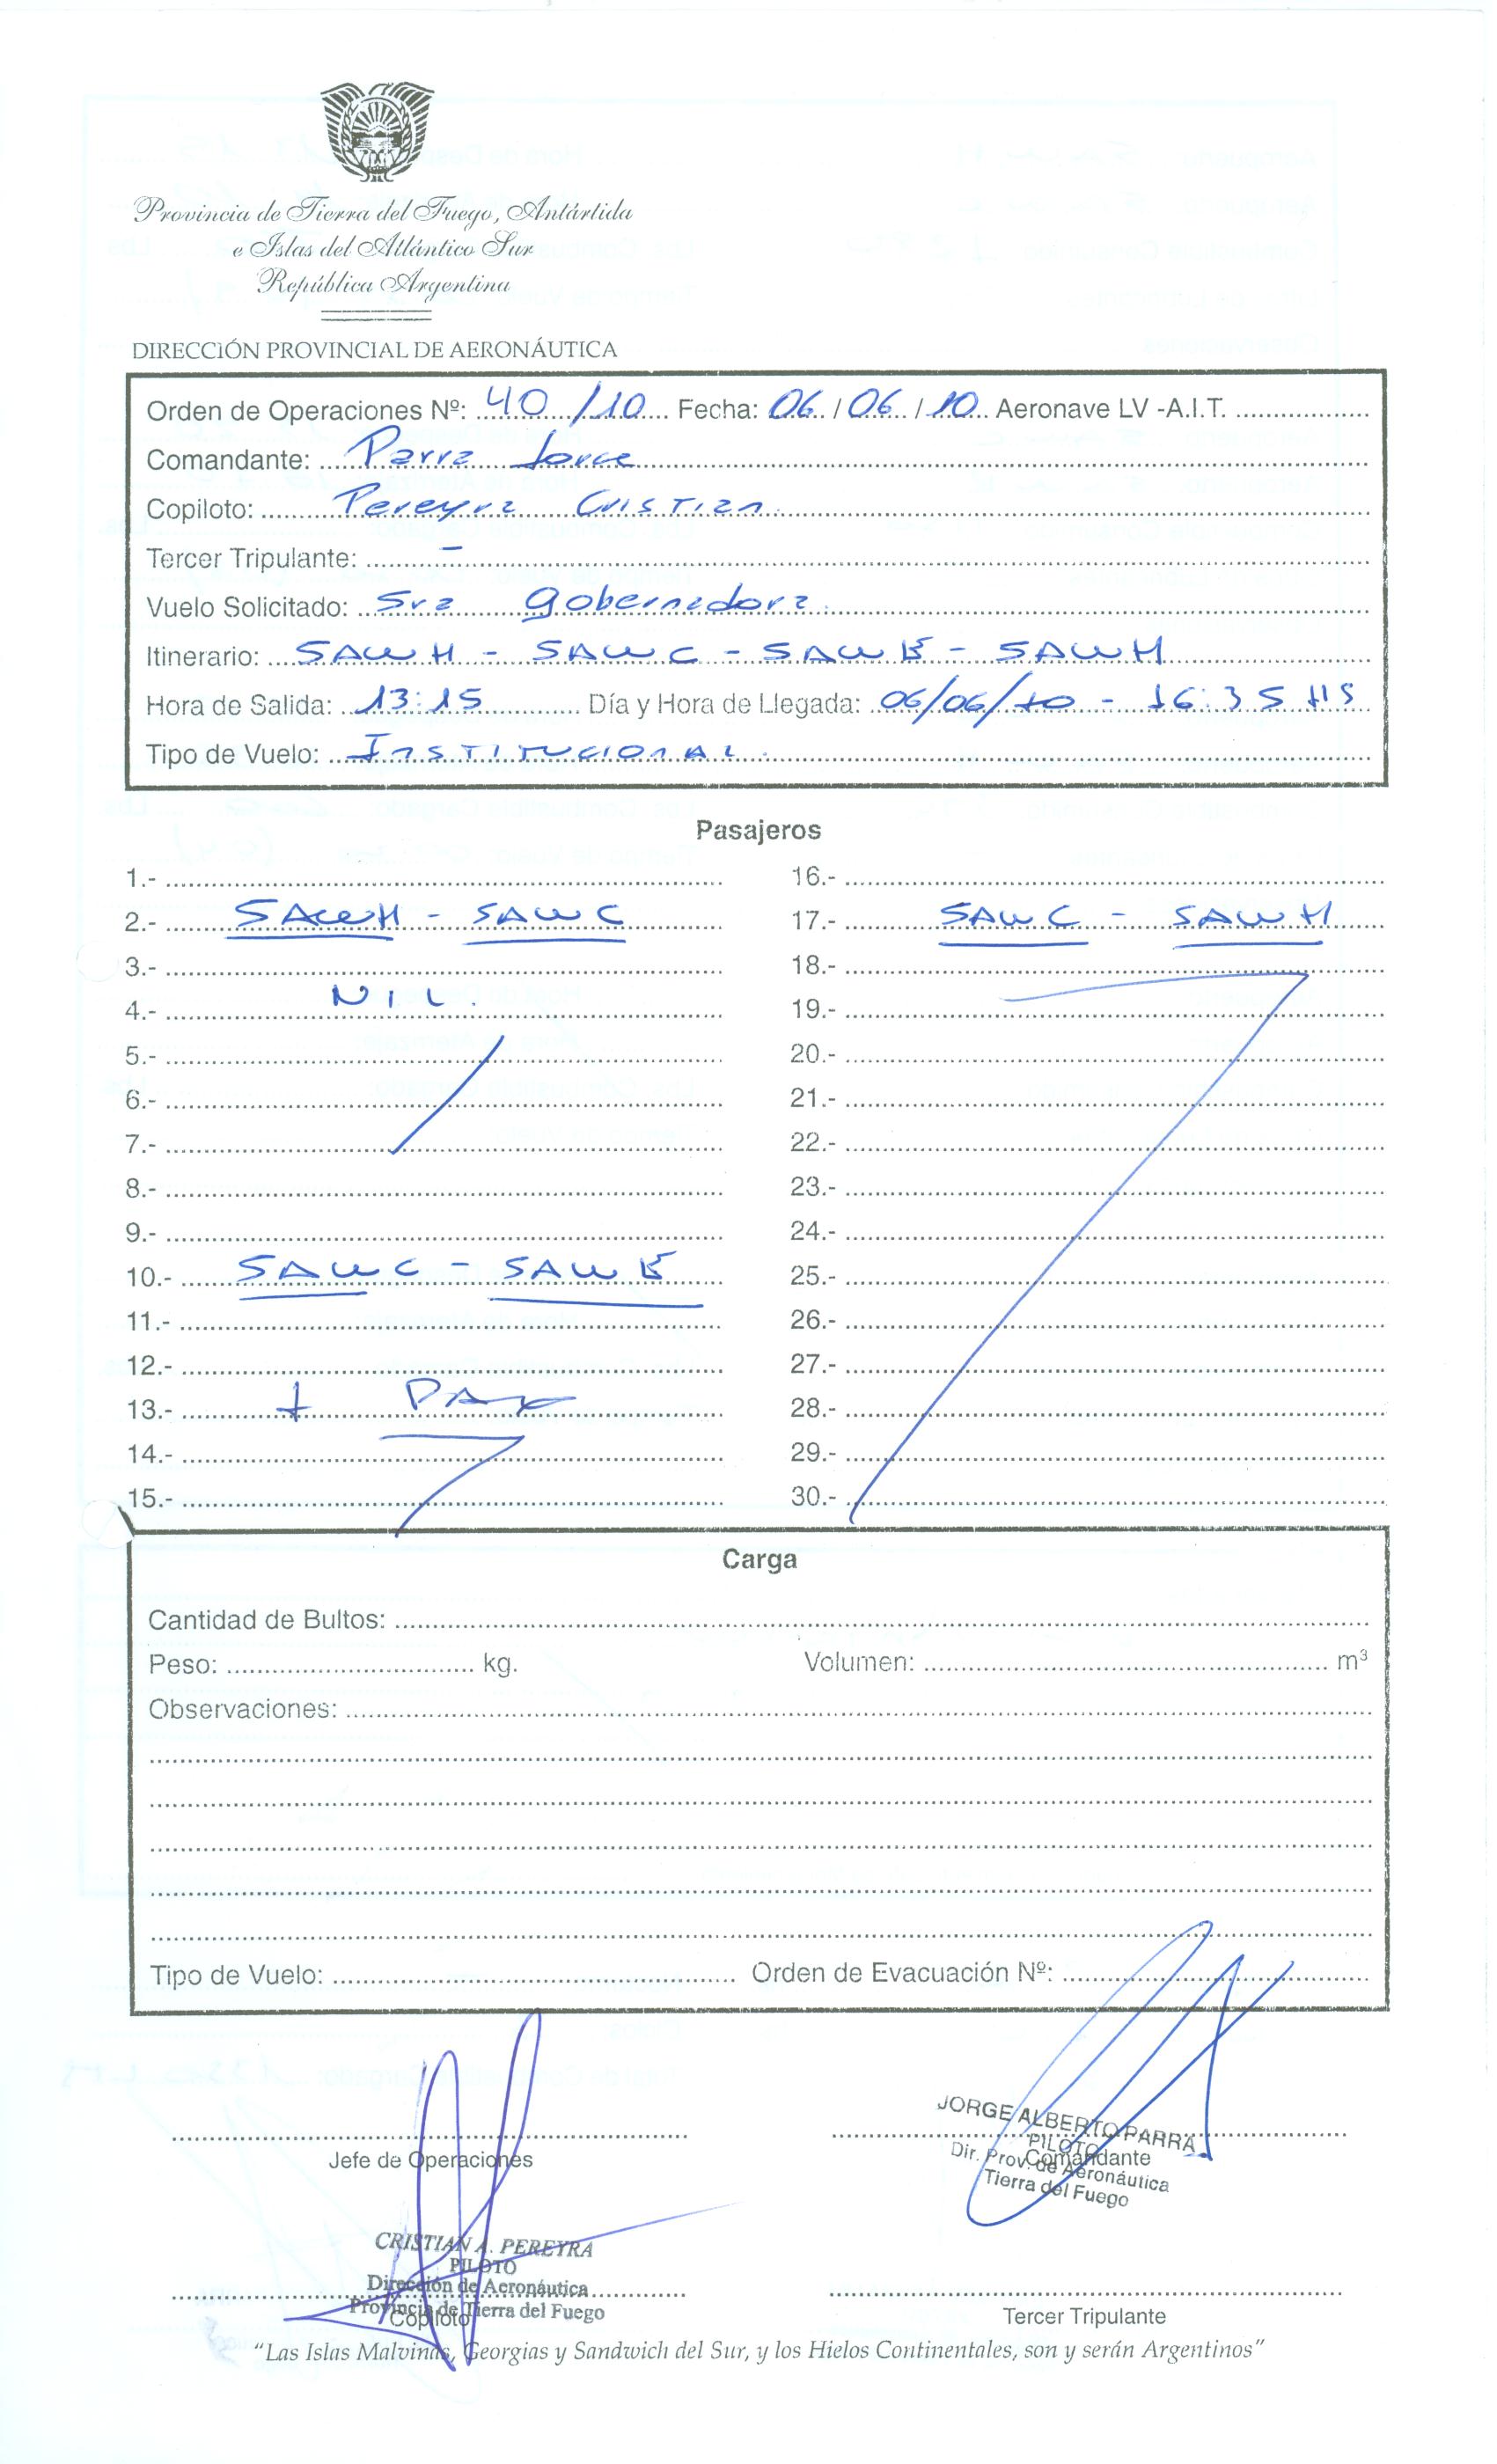 Provincia de Tierra del Fuego, Antártida
e Islas del Atlántico Sur
República Argentina
DIRECCIÓN PROVINCIAL DE AERONÁUTICA
Orden de Operaciones Nº: 40 /10 Fecha: 06 / 06 / 10 Aeronave LV -A.I.T.
Comandante: Parra Jorge
Copiloto: Pereyra Cristian
Tercer Tripulante: -
Vuelo Solicitado: Sra Gobernadora
Itinerario: SAWH - SAWC - SAWE - SAWH
Hora de Salida: 13:15 Día y Hora de Llegada: 06/06/10 - 16:35 HS
Tipo de Vuelo: Institucional.
Pasajeros
1.-
2.- SAWH - SAWC
3.-
4.- NIL.
5.-
6.-
7.-
8.-
9.-
10.- SAWC - SAWE
11.-
12.-
13.- 1 PAX
14.-
15.-
16.-
17.- SAWC - SAWH
18.-
19.-
20.-
21.-
22.-
23.-
24.-
25.-
26.-
27.-
28.-
29.-
30.-
Carga
Cantidad de Bultos:
Peso: kg. Volumen: m³
Observaciones:
Tipo de Vuelo: Orden de Evacuación Nº:
Jefe de Operaciones
JORGE ALBERTO PARRA
PILOTO
Comandante
Dir. Prov. de Aeronáutica
Tierra del Fuego
CRISTIAN A. PEREYRA
PILOTO
Dirección de Aeronáutica
Provincia de Tierra del Fuego
Copiloto
Tercer Tripulante
"Las Islas Malvinas, Georgias y Sandwich del Sur, y los Hielos Continentales, son y serán Argentinos"